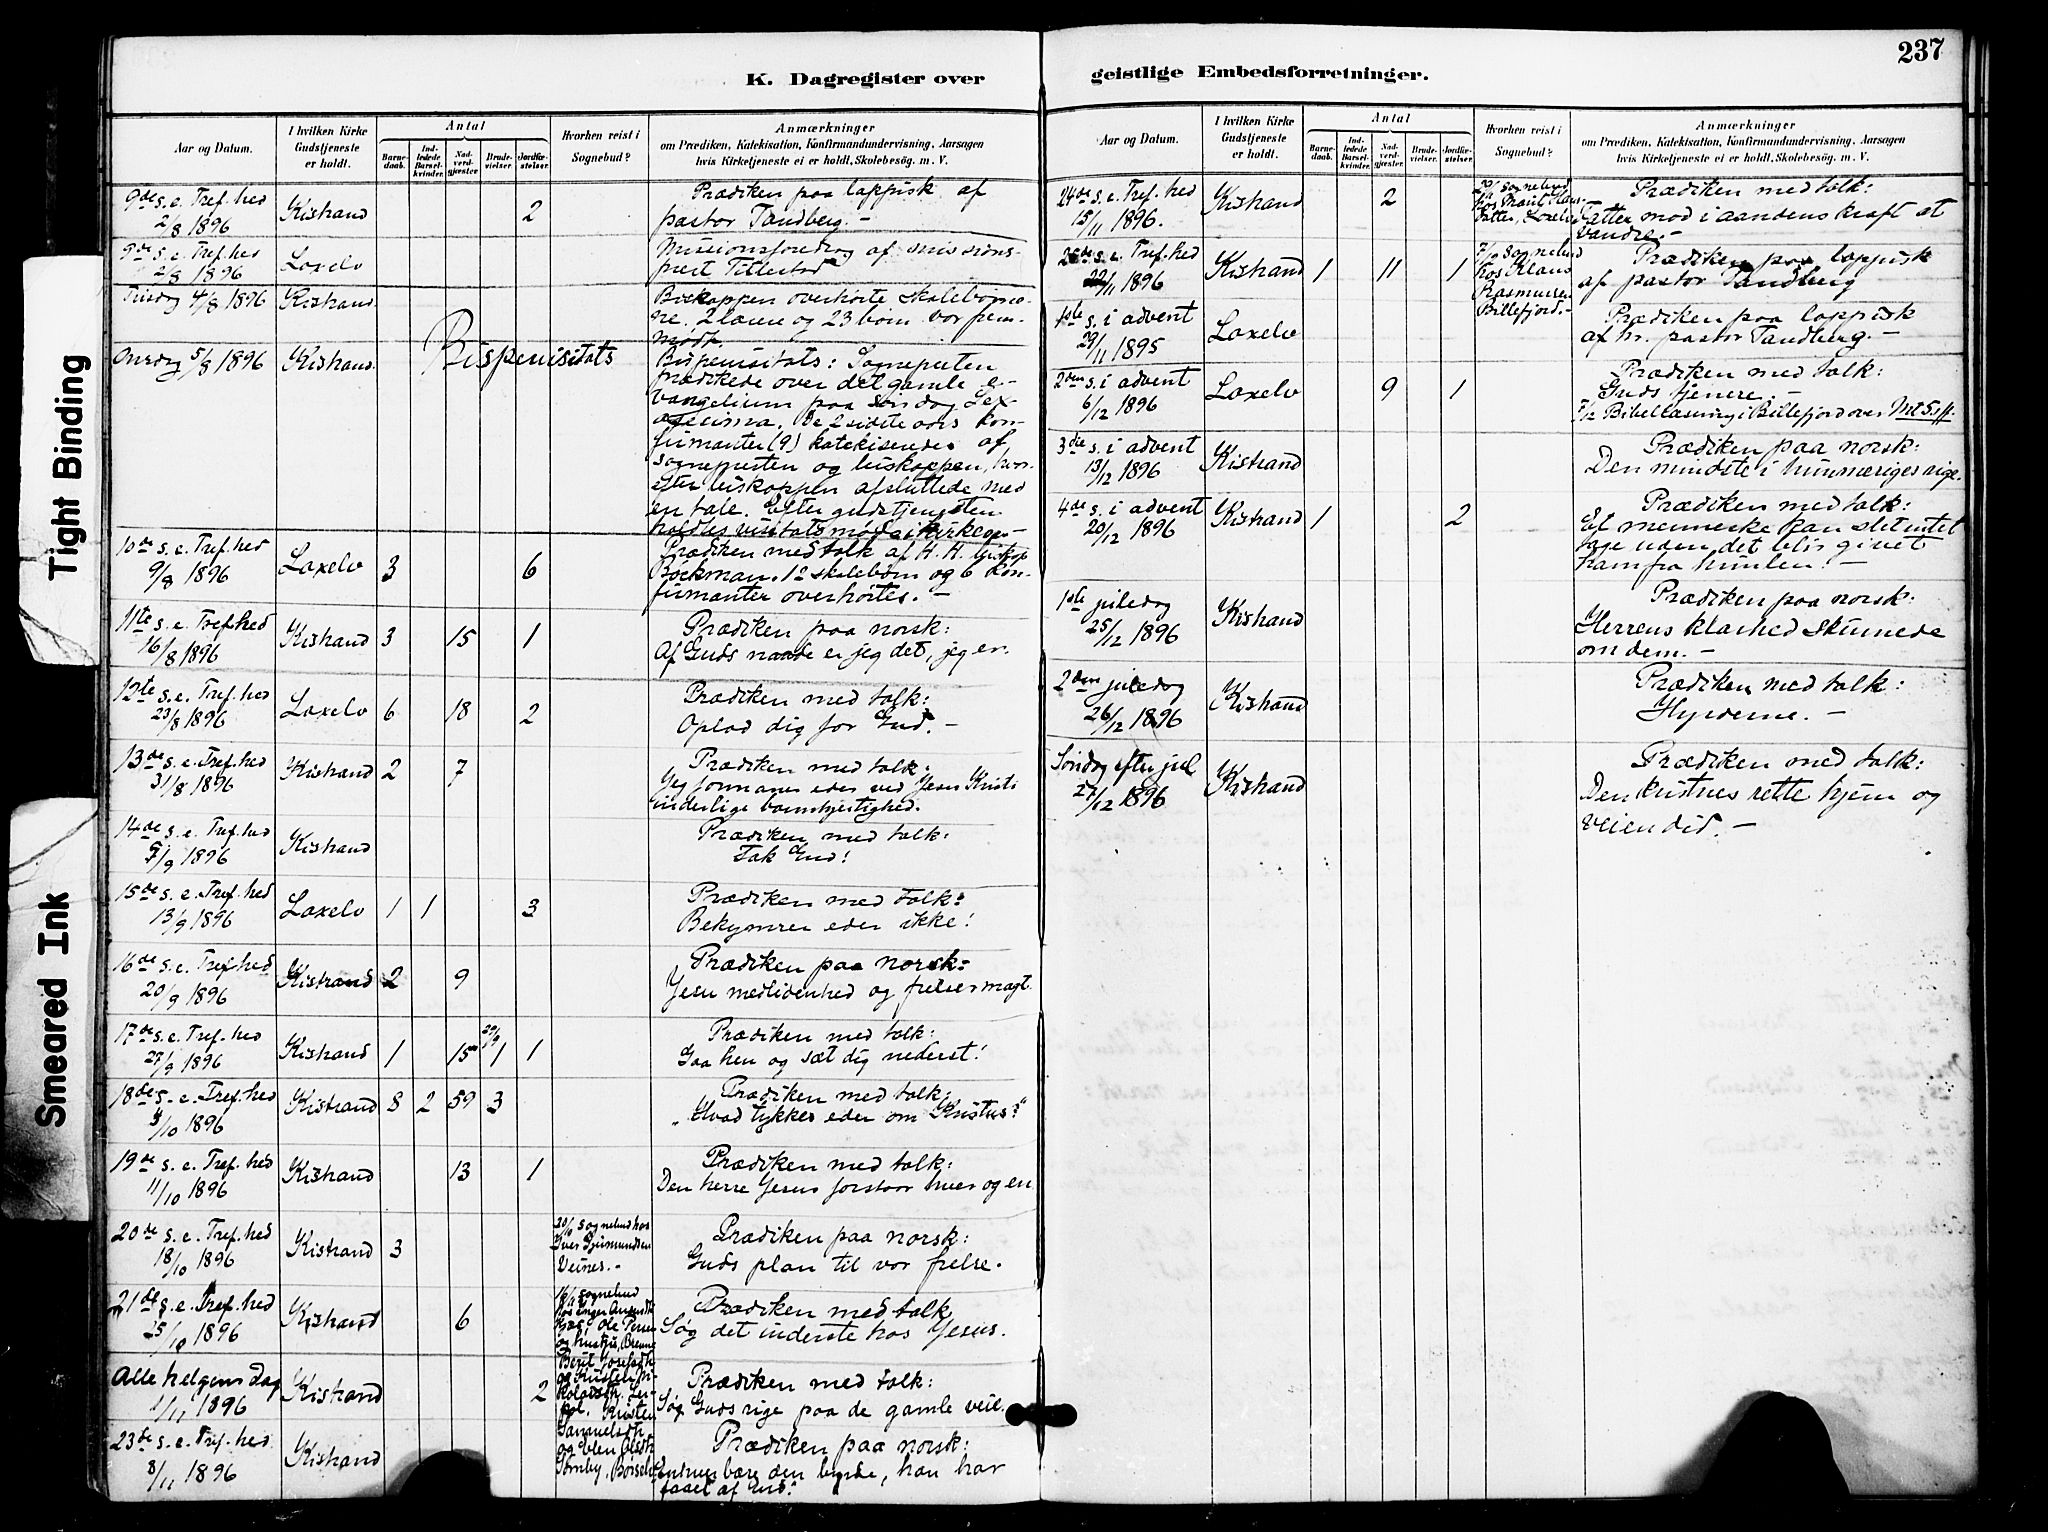 Tight Binding
Smeared Ink
237
K. Dagregister over
geistlige Embedsforretninger.
Aar og Datum.
I hvilken Kirke Gudstjeneste er holdt.
Antal
Barne-daab.
Ind-ledede Barsel-kvinder.
Nad-verd-gjester
Brude-vielser.
Jordfæ-stelser.
Hvorhen reist i Sognebud?
Anmærkninger
om Prædiken, Katekisation, Konfirmandundervisning, Aarsagen
hvis Kirketjeneste ei er holdt, Skolebesøg. m. V.
9de s. e. Tref. hed 2/8 1896 Kistrand 2 Prædiken paa lappisk af
pastor Tandberg. -
9de s. e. Tref. hed 2/8 1896 Laxelv Missionsforedrag af missions-
prest
Tirsdag 4/8 1896 Kistrand. Biskoppen overhørte skolebørne-
ne. 2 lærere og 23 børn var frem-
mødt.
Onsdag 5/8 1896 Kistrand. Bispevisitats Bispevisitats: Sognepresten
prædikede over det gamle e-
vangelium paa søndag Sex-
agesima. De 2 sidste aars kon-
firmanter (9) katekiseredes af
sognepresten og biskoppen, hvor-
efter biskoppen afsluttede med
en tale. Efter gudstjenesten
holdtes visitatsmøde i kirken -
10de s. e. Tref. hed 9/8 1896 Laxelv 3 6 Prædiken med tolk af H. H. biskop
Bøckman. 12 skolebørn og 6 kon-
firmanter overhørtes. -
11te s. e. Tref. hed 16/8 1896 Kistrand 3 15 1 Prædiken paa norsk:
Af Guds naade er jeg det, jeg er.
12te s. e. Tref. hed 23/8 1896 Laxelv 6 18 2 Prædiken med tolk:
Oplad dig for Gud. -
13de s. e. Tref. hed 31/8 1896 Kistrand 2 7 Prædiken med tolk:
Jeg formaner eder ved Jesu Kristi
inderlige barmhjertighed.
14de s. e. Tref. hed /9 1896 Kistrand Prædiken med tolk:
Tak Gud!
15de s. e. Tref. hed 13/9 1896 Laxelv 1 1 3 Prædiken med tolk:
Bekymrer eder ikke!
16de s. e. Tref. hed 20/9 1896 Kistrand 2 9 Prædiken paa norsk:
Jesu medlidenhed og frelsermagt.
17de s. e. Tref. hed 27/9 1896 Kistrand 1 15 1 1 Prædiken med tolk:
Gaa hen og sæt dig nederst!
18de s. e. Tref. hed 4/10 1896 Kistrand 8 2 59 3 Prædiken med tolk:
"Hvad tykkes eder om Kristus?"
19de s. e. Tref. hed 11/10 1896 Kistrand 13 1 Prædiken med tolk:
Den herre Jesus forstaar hver og en
20de s. e. Tref. hed 18/10 1896 Kistrand 3 sognebud hos
Veines. - Prædiken paa norsk:
Guds plan til vor frelse.
21de s. e. Tref. hed 25/10 1896 Kistrand 6 sognebud
hos Inger
Ole
Prædiken med tolk
Søg det inderste hos Jesus.
Alle helgens dag 1/11 1896 Kistrand 2 Berit Josefsdtr.
Prædiken med tolk:
Søg Guds rige paa de gamle veie.
23de s. e. Tref. hed. 8/11 1896 Kistrand Samuelsdtr.
og Elen Olsdtr.
Børselv Prædiken paa norsk:
Enhver bære den byrde, han har
faaet af Gud.
Aar og Datum.
I hvilken Kirke Gudstjeneste er holdt.
Antal
Barne-daab.
Ind-ledede Barsel-kvinder.
Nad-verd-gjester
Brude-vielser.
Jordfæ-stelser.
Hvorhen reist i Sognebud?
Anmærkninger
om Prædiken, Katekisation, Konfirmandundervisning, Aarsagen
hvis Kirketjeneste ei er holdt, Skolebesøg. m. V.
24de s. e. Tref. hed 15/11 1896. Kistrand 2 sognebud
hos Marit
Laxelv Prædiken med tolk:
Fatter mod i aandens kraft at
vandre. -
s. e. Tref. hed 22/11 1896 Kistrand 1 11 1 sognebud
hos Klaus
Rasmussen
Billefjord. - Prædiken paa lappisk
af pastor Tandberg
1ste s. i advent 29/11 1895 Laxelv Prædiken paa lappisk
af hr. pastor Tandberg. -
2den s. i advent 6/12 1896 Laxelv 9 1 Prædiken med tolk:
Guds tjenere -
7/12 Bibellæsning i Billefjord over Mt 5 ff.
3die s. i advent 13/12 1896 Kistrand Prædiken paa norsk:
Den mindste i himmeriges rige.
4de s. i advent 20/12 1896 Kistrand 1 2 Prædiken med tolk:
Et menneske kan slet intet
tage uden det blir givet
ham fra himlen. -
1ste juledag 25/12 1896 Kistrand Prædiken paa norsk:
Herrens klarhed skinnede
om dem. -
2den juledag 26/12 1896 Kistrand Prædiken med tolk:
Hyrderne. -
Søndag efter jul 27/12 1896 Kistrand Prædiken med tolk:
Den kristnes rette hjem og
veien did. -